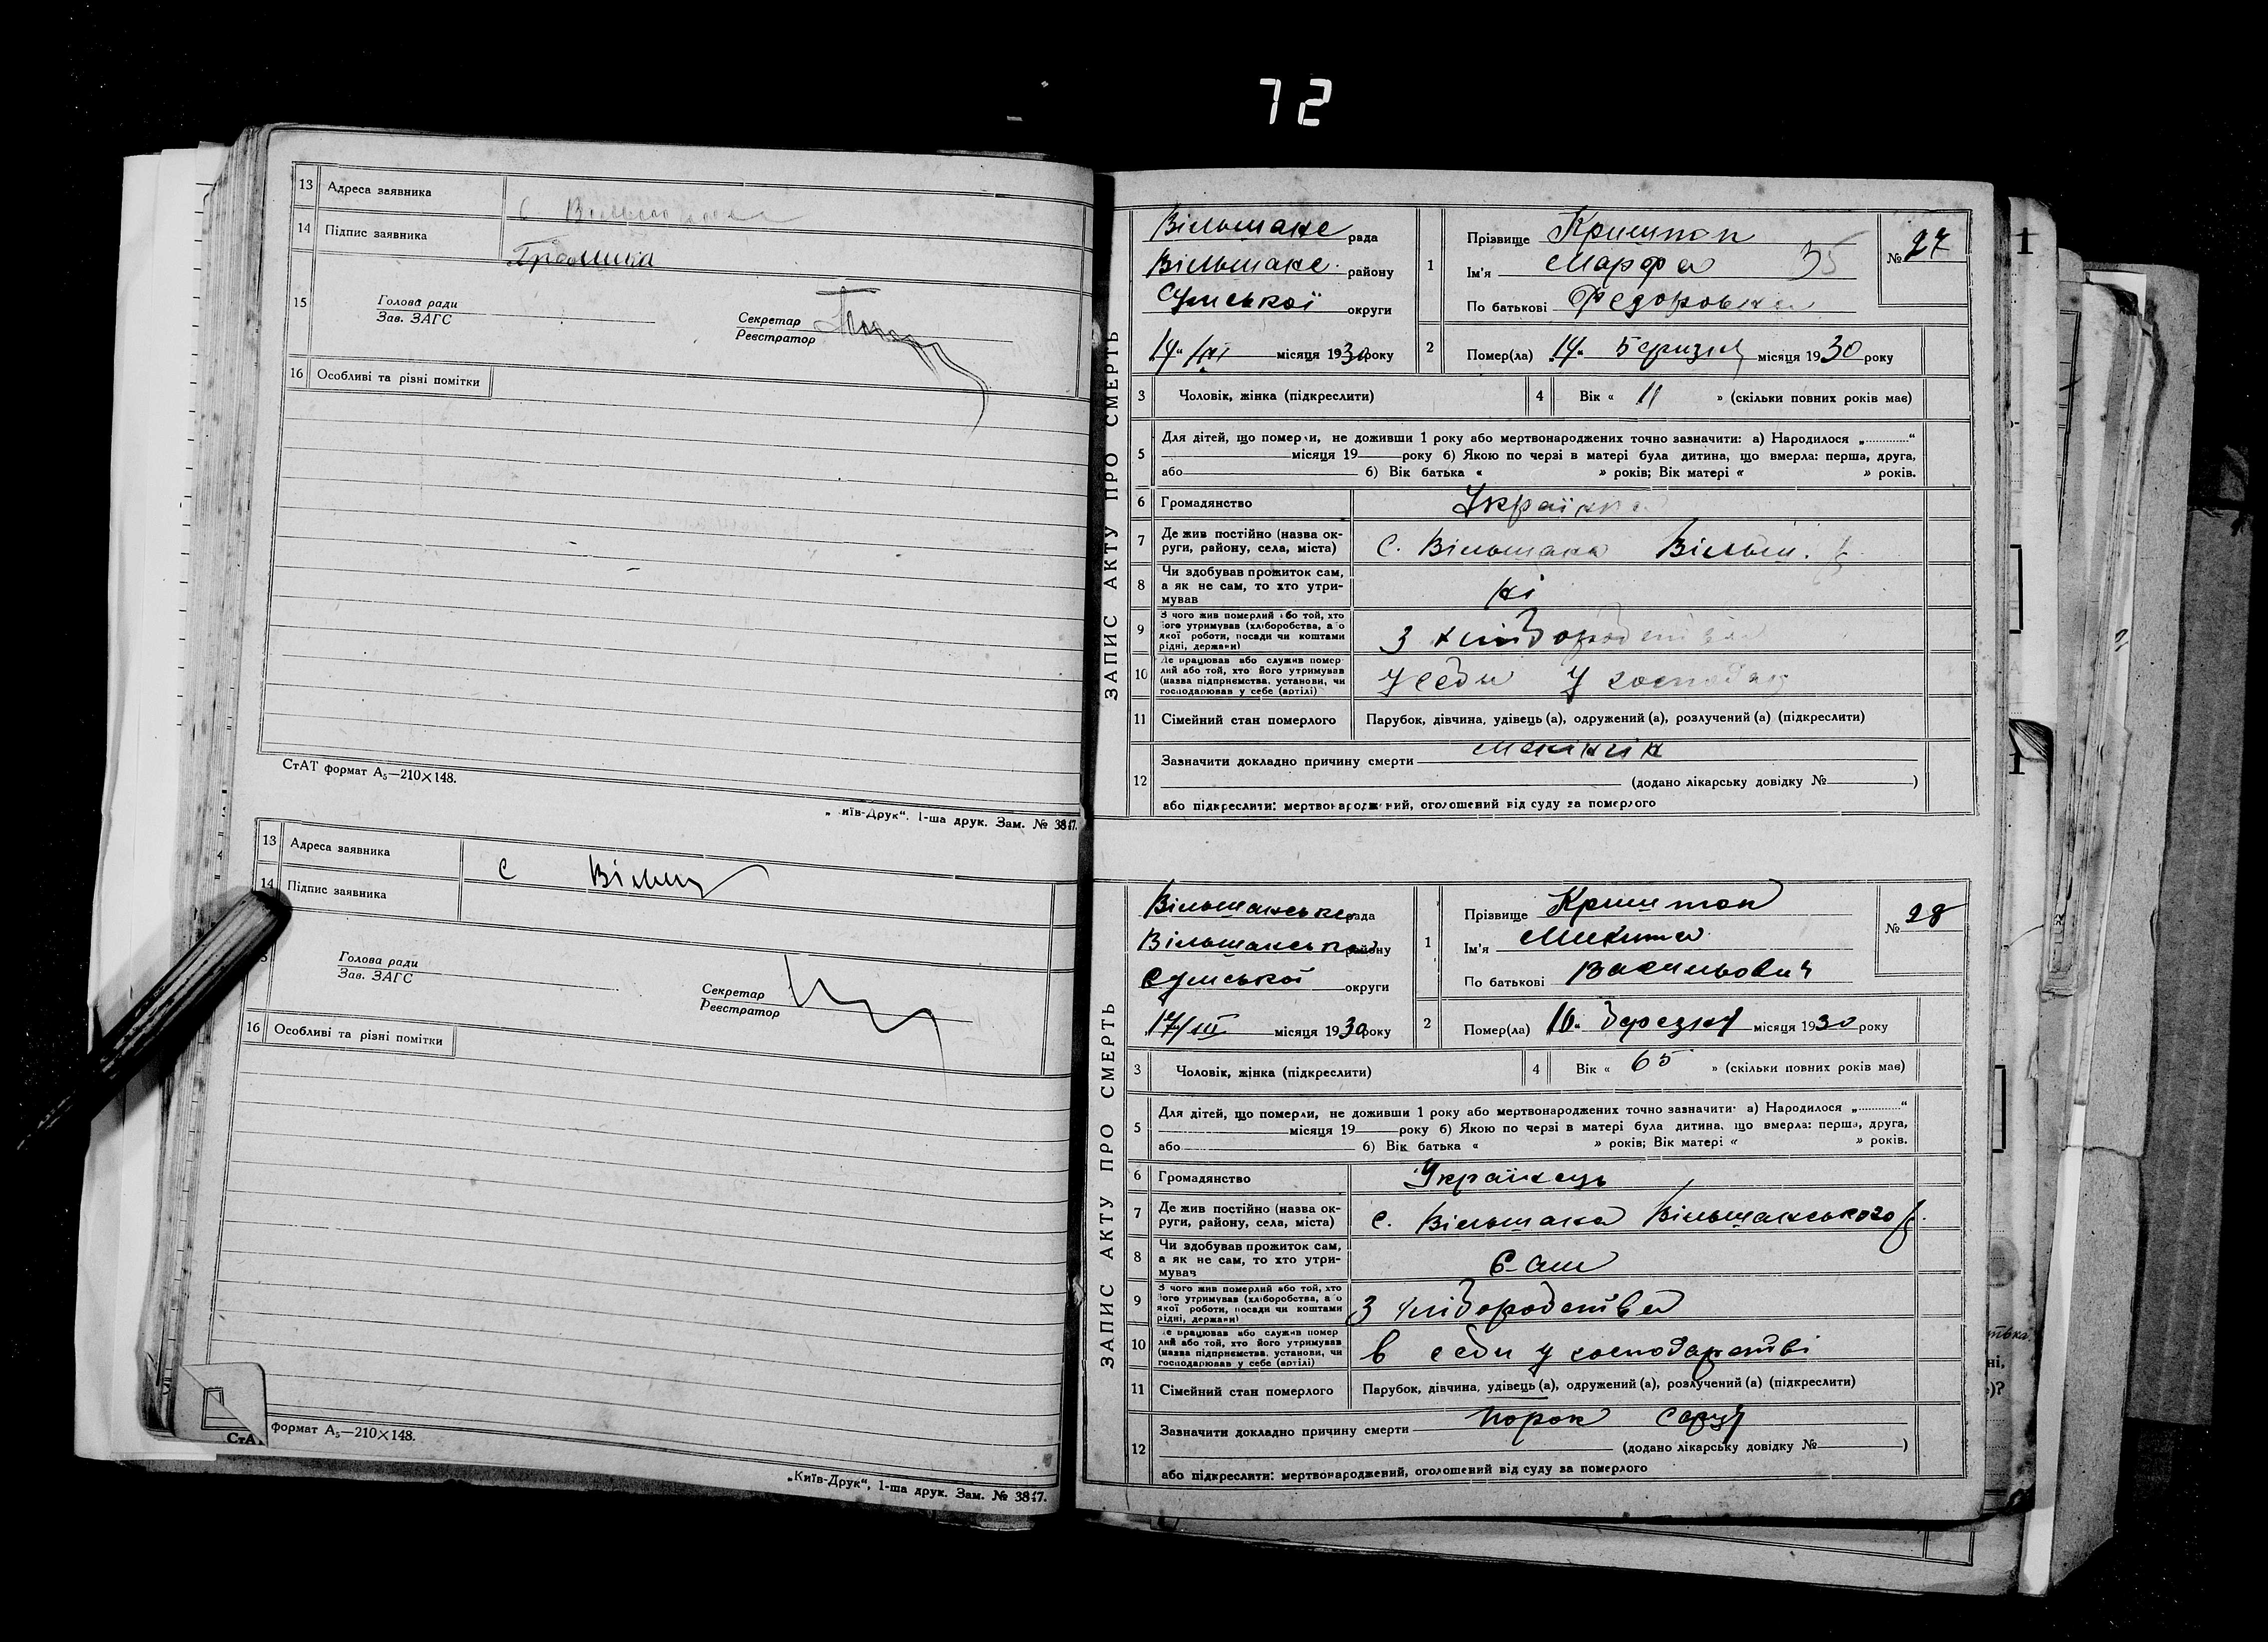 72
13 Адреса заявника
14 Підпис заявника
15 Голова ради
Зав. ЗАГС
Секретар
Реєстратор
16 Особливі та різні помітки
СтАТ формат А₅—210×148.
„ иїв-Друк“. 1-ша друк. Зам. № 3847.
13 Адреса заявника с
14 Підпис заявника
Голова ради
Зав. ЗАГС
Секретар
Реєстратор
16 Особливі та різні помітки
СтА
формат А₅—210×148.
„Київ-Друк“, 1-ша друк. Зам. № 3847.
ЗАПИС АКТУ ПРО СМЕРТЬ
Вільшанс рада
Вільшанс. району
Сумської округи
14/III місяця 1930 року
1 Прізвище Криштоп
Ім'я Марфа 35
По батькові Федоровна
№ 27
2 Помер(ла) 14 березня місяця 1930 року
3 Чоловік, жінка (підкреслити)
4 Вік « 11 » (скільки повних років має)
5 Для дітей, що померли, не доживши 1 року або мертвонароджених точно зазначити: а) Народилося „............“
місяця 19 року б) Якою по черзі в матері була дитина, що вмерла: перша, друга,
або б) Вік батька « » років; Вік матері « » років.
6 Громадянство Українка
7 Де жив постійно (назва ок-
руги, району, села, міста) с. Вільшана Вільш. р
8 Чи здобував прожиток сам,
а як не сам, то хто утри-
мував ні
9 З чого жив померлий або той, хто
його утримував (хліборобства, або
якої роботи, посади чи коштами
рідні, держави) З хліборобства
10 Де працював або служив помер
лий або той, хто його утримував
(назва підприємства, установи, чи
господарював у себе (артілі) у себи у господар
11 Сімейний стан померлого Парубок, дівчина, удівець (а), одружений (а), розлучений (а) (підкреслити)
12 Зазначити докладно причину смерти менінгіт
(додано лікарську довідку № )
або підкреслити: мертвонароджений, оголошений від суду за померлого
ЗАПИС АКТУ ПРО СМЕРТЬ
Вільшанська рада
Вільшанськог району
Сумської округи
17/III місяця 1930 року
1 Прізвище Криштоп
Ім'я Микита
По батькові Васильович
№ 28
2 Помер(ла) 16 березня місяця 1930 року
3 Чоловік, жінка (підкреслити)
4 Вік « 65 » (скільки повних років має)
5 Для дітей, що померли, не доживши 1 року або мертвонароджених точно зазначити: а) Народилося „............“
місяця 19 року б) Якою по черзі в матері була дитина, що вмерла: перша, друга,
або б) Вік батька « » років; Вік матері « » років.
6 Громадянство Українець
7 Де жив постійно (назва ок-
руги, району, села, міста) с. Вільшана Вільшанського р.
8 Чи здобував прожиток сам,
а як не сам, то хто утри-
мував Сам
9 З чого жив померлий або той, хто
його утримував (хліборобства, або
якої роботи, посади чи коштами
рідні, держави) З хліборобства
10 Де працював або служив помер
лий або той, хто його утримував
(назва підприємства, установи, чи
господарював у себе (артілі) в себи у господарстві
11 Сімейний стан померлого Парубок, дівчина, удівець (а), одружений (а), розлучений (а) (підкреслити)
12 Зазначити докладно причину смерти порок серця
(додано лікарську довідку № )
або підкреслити: мертвонароджений, оголошений від суду за померлого